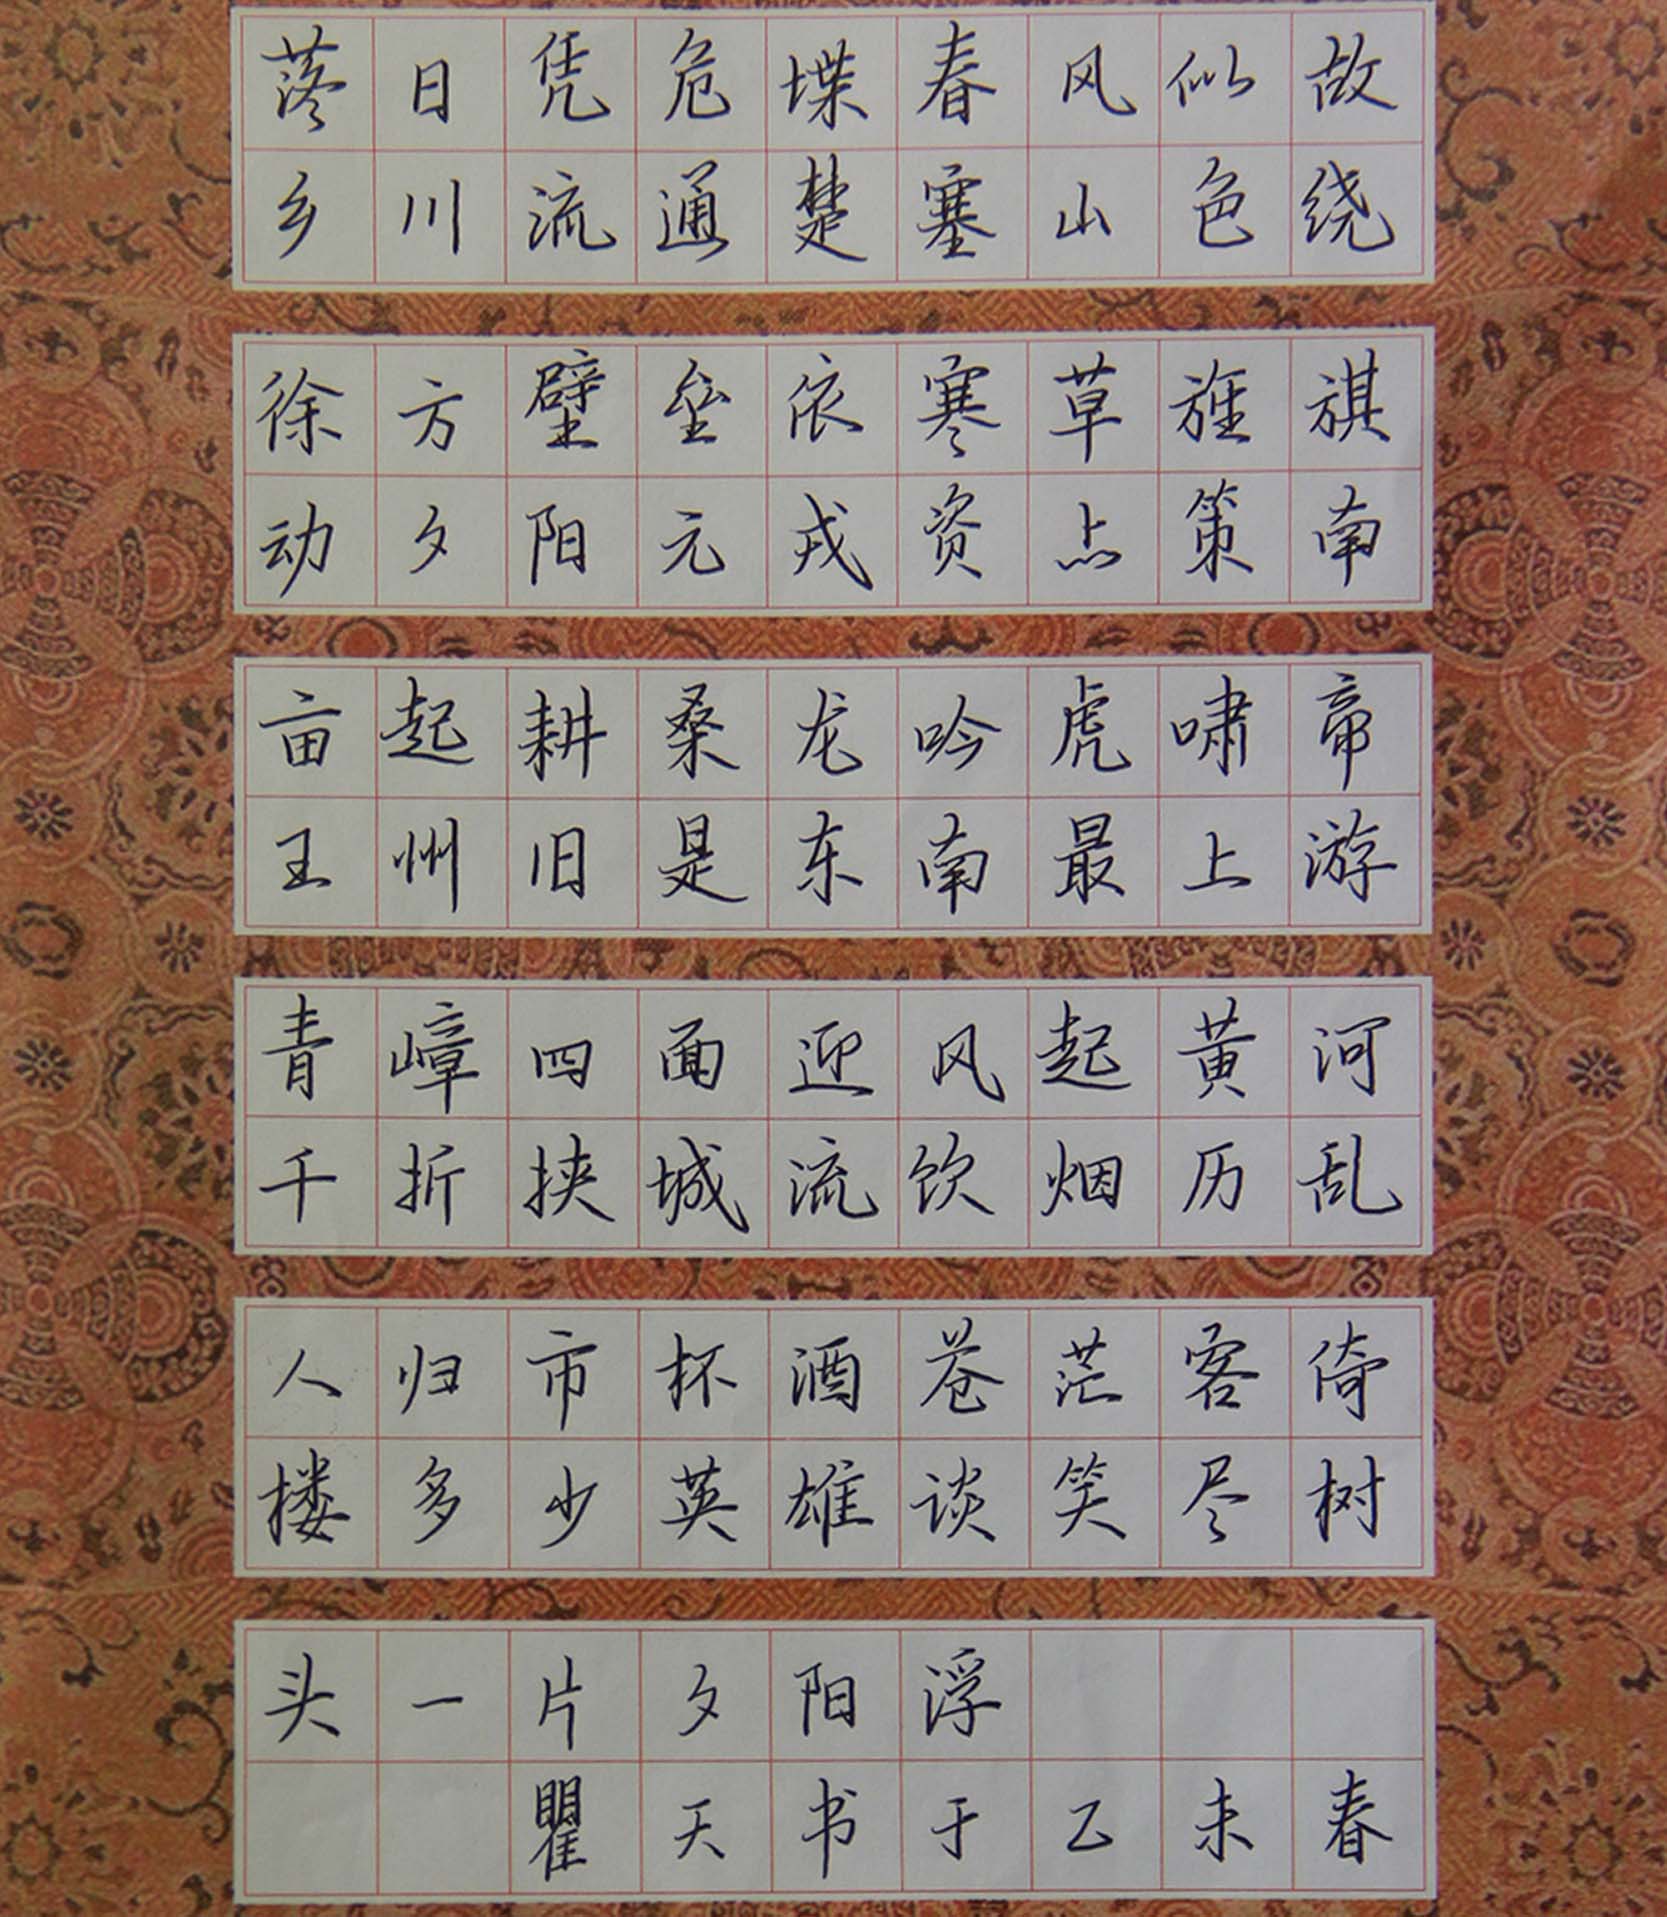 落日凭危堞春风似故
乡川流通楚塞山色绕
徐方壁垒依寒草旌旗
动夕阳元戎资上策南
亩起耕桑龙吟虎啸帝
王州旧是东南最上游
青嶂四面迎风起黄河
千折挟城流饮烟历乱
人归市杯酒苍茫客倚
楼多少英雄谈笑尽树
头一片夕阳浮
瞿天书于乙未春